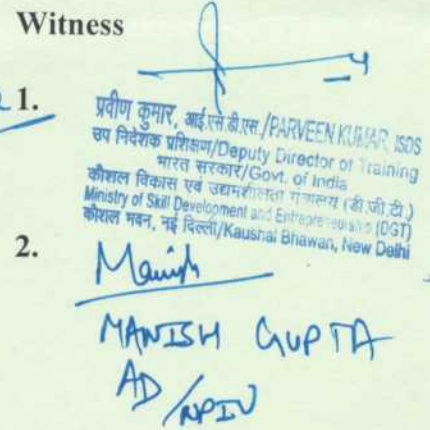 Witness
1.
प्रवीण कुमार, आई.एस.डी.एस./PARVEEN KUMAR, ISDS
उप निदेशक प्रशिक्षण/Deputy Director of Training
भारत सरकार/Govt. of India
कौशल विकास एवं उद्यमशीलता मंत्रालय (डी.जी.टी.)
Ministry of Skill Development and Entrepreneurship (DGT)
कौशल भवन, नई दिल्ली/Kaushal Bhawan, New Delhi
2.
Manish
MANISH GUPTA
AD/NPIU